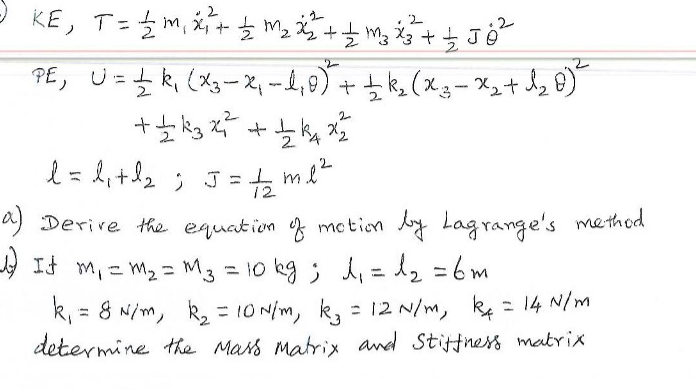 KE, T = ½ m₁ ẋ₁² + ½ m₂ ẋ₂² + ½ m₃ ẋ₃² + ½ J θ̇²
PE, U = ½ k₁ (x₃ − x₁ − l₁θ)² + ½ k₂ (x₃ − x₂ + l₂ θ)²
+ ½ k₃ x₁² + ½ k₄ x₂²
l = l₁ + l₂ ; J = 1/12 m l²
a) Derive the equation of motion by Lagrange's method
b) If m₁ = m₂ = m₃ = 10 kg ; l₁ = l₂ = 6 m
k₁ = 8 N/m, k₂ = 10 N/m, k₃ = 12 N/m, k₄ = 14 N/m
determine the Mass Matrix and Stiffness matrix